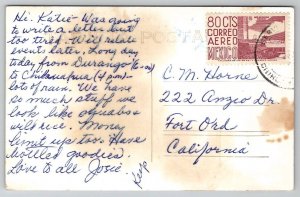 Hi. Katie - Was going
to write a letter but
too tired. Will relate
event later. Long day
today from Durango
to Chihuahua
lots of rain. We have
so much stuff we
look like
Money
limit up too. Have
bottled goodies.
Love to all Josie.
80 CTS
CORREO
AEREO
MEXICO
C. M. Horne
222 Anzio Dr.
Fort Ord
California